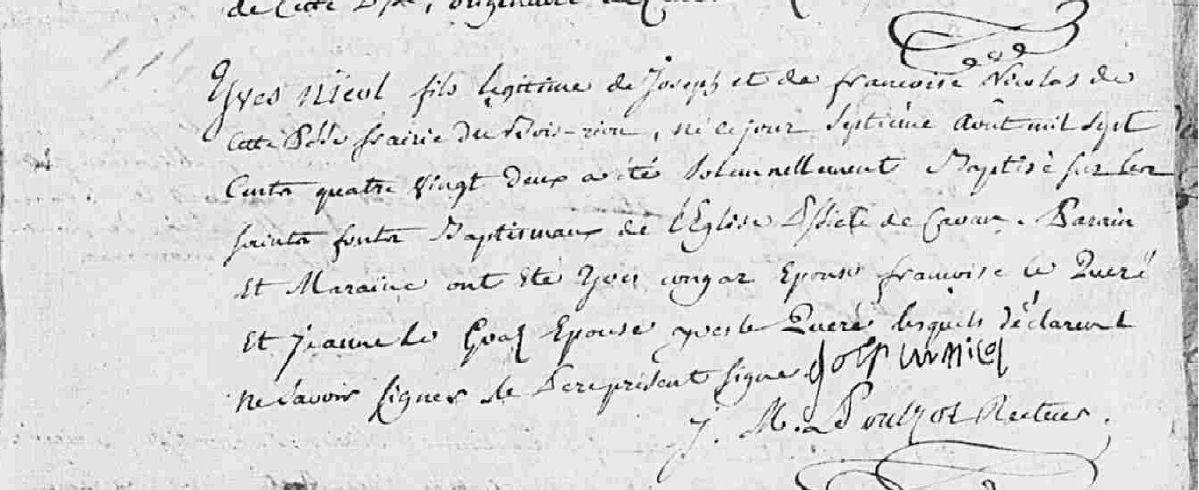 de Cette
Yves Nicol fils legitime de Joseph et de francoise Nicolas de
Cette Psse frairie du Bois-riou, né ce jour Septieme Aout mil Sept
Cents quatre vingt deux a été Solemnellement Baptisé sur les
saints fonts Baptismaux de l'Eglise de Cavan. Parain
Et Maraine ont Eté Yves congar Epoux francoise le Queré
Et Jeanne le Goaz Epouse yves le Queré lesquels déclarent
ne savoir Signer le Pere present Signe
J. M. Recteur.